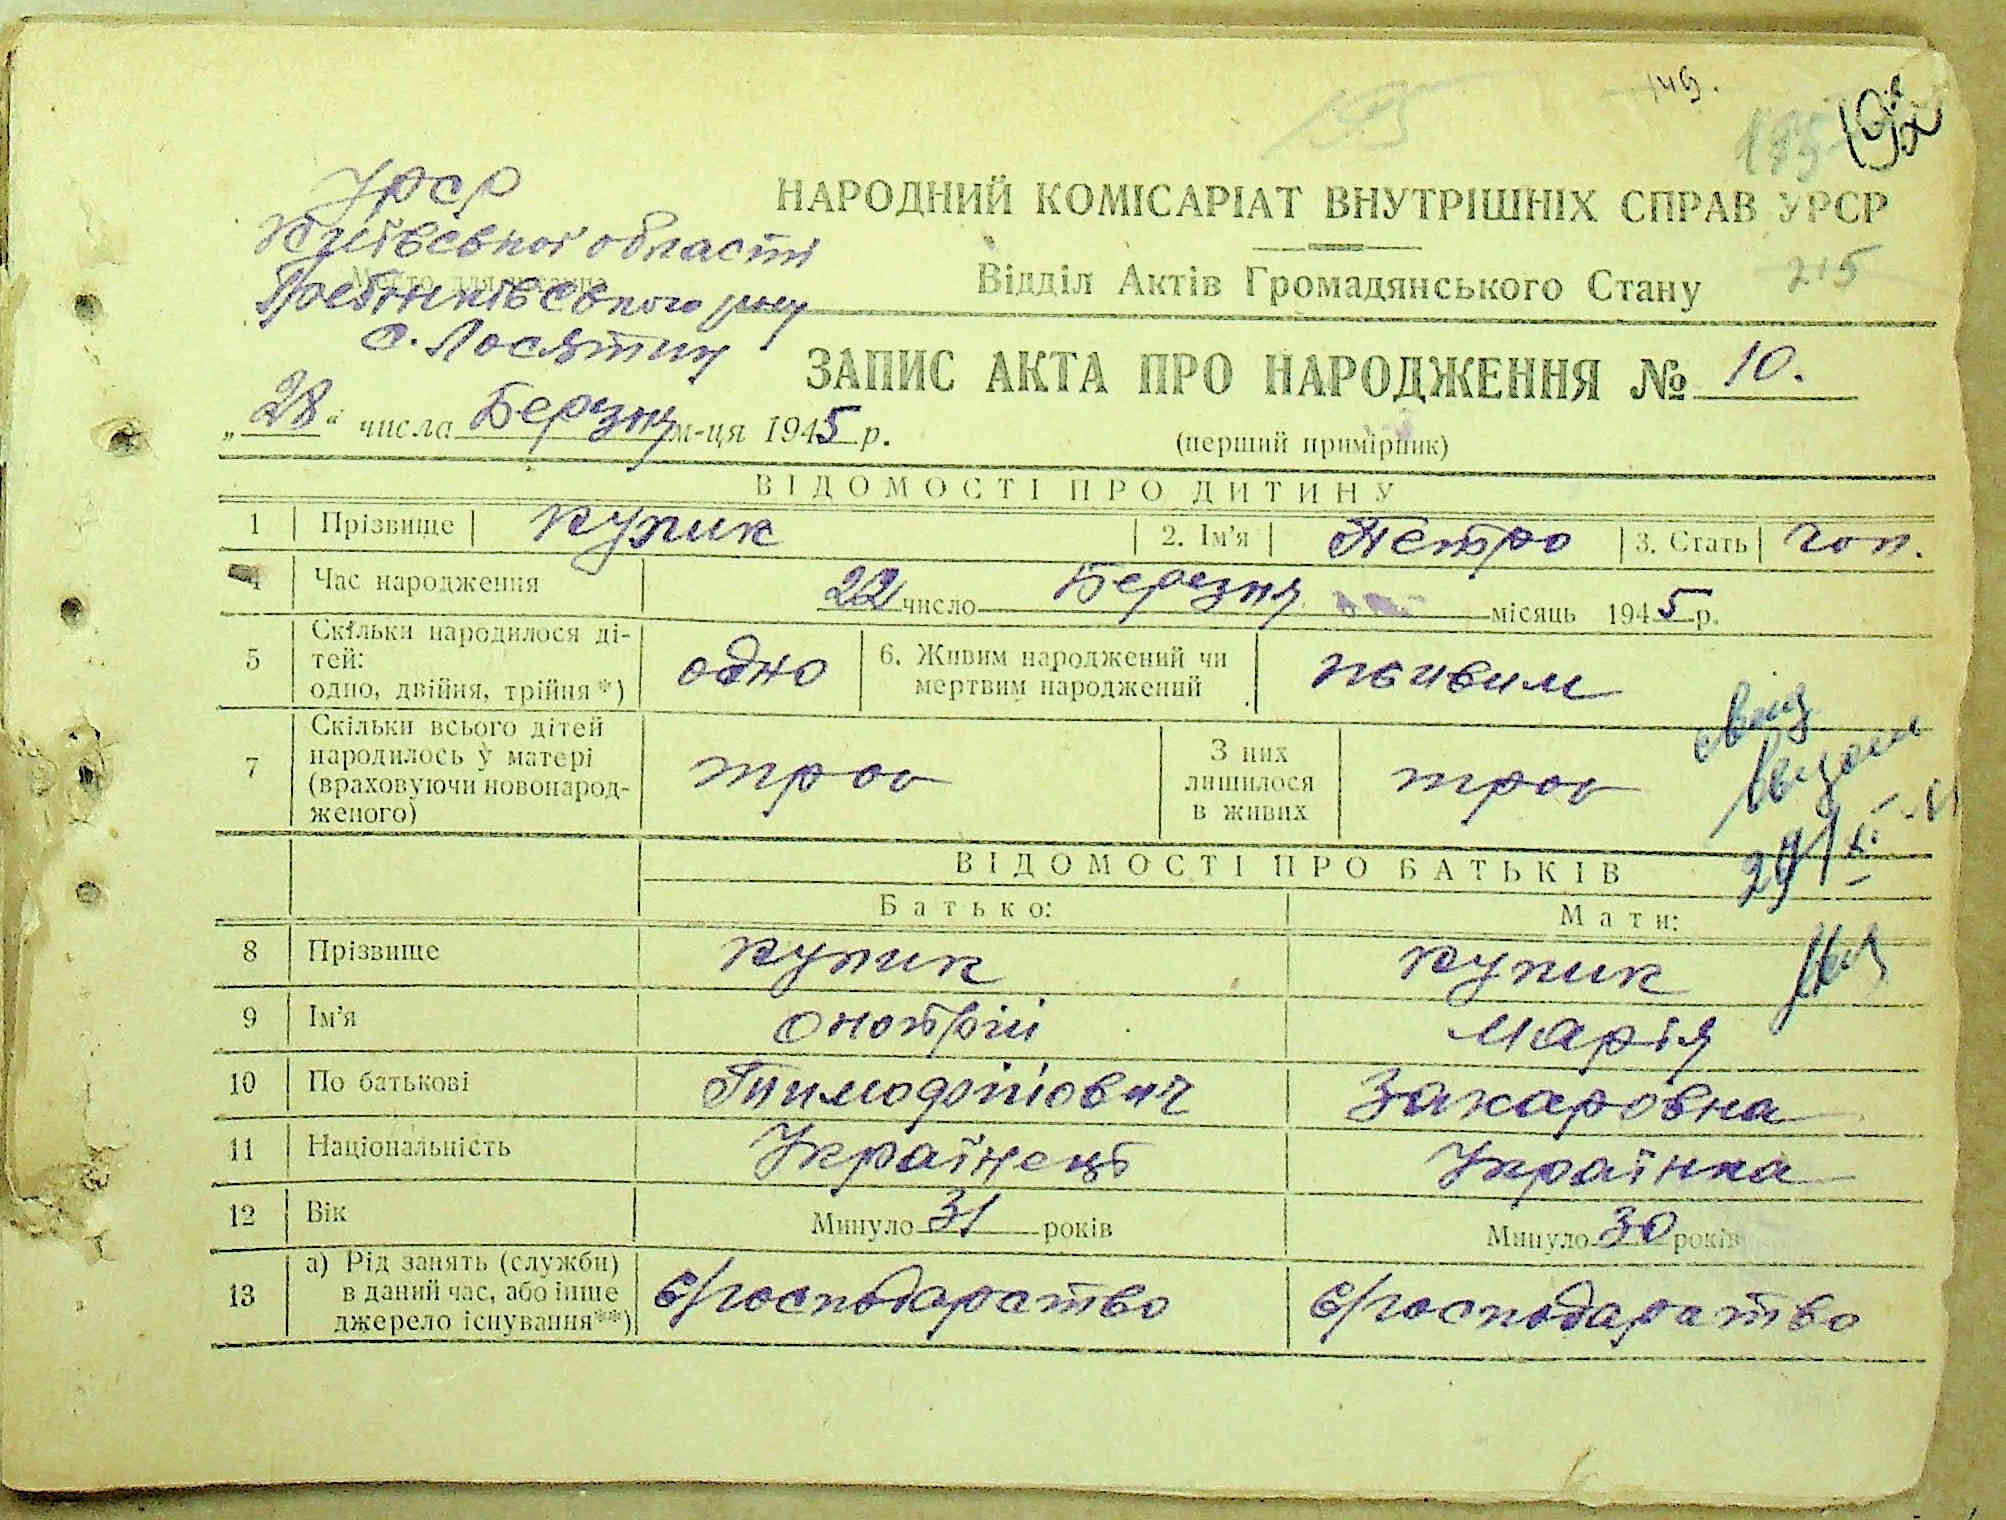 149.
195
УРСР
Київської області
Гребінківського р-ну
с. Лосятин
НАРОДНИЙ КОМІСАРІАТ ВНУТРІШНІХ СПРАВ УРСР
Відділ Актів Громадянського Стану
215
ЗАПИС АКТА ПРО НАРОДЖЕННЯ № 10.
„28“ числа Березня м-ця 1945 р.
(перший примірник)
ВІДОМОСТІ ПРО ДИТИНУ
1 Прізвище Кулик 2. Ім'я Петро 3. Стать чол.
4 Час народження 22 число Березня місяць 1945 р.
5 Скільки народилося ді-
тей:
одно, двійня, трійня*) одно 6. Живим народжений чи
мертвим народжений живим
7 Скільки всього дітей
народилось у матері
(враховуючи новонарод-
женого) троє З них
лишилося
в живих троє
ВІДОМОСТІ ПРО БАТЬКІВ
Батько: Мати:
8 Прізвище Кулик Кулик
9 Ім'я Онопрій Марія
10 По батькові Тимофійович Захаровна
11 Національність Українець Українка
12 Вік Минуло 31 років Минуло 30 років
13 а) Рід занять (служби)
в даний час, або інше
джерело існування**) с/господарство с/господарство